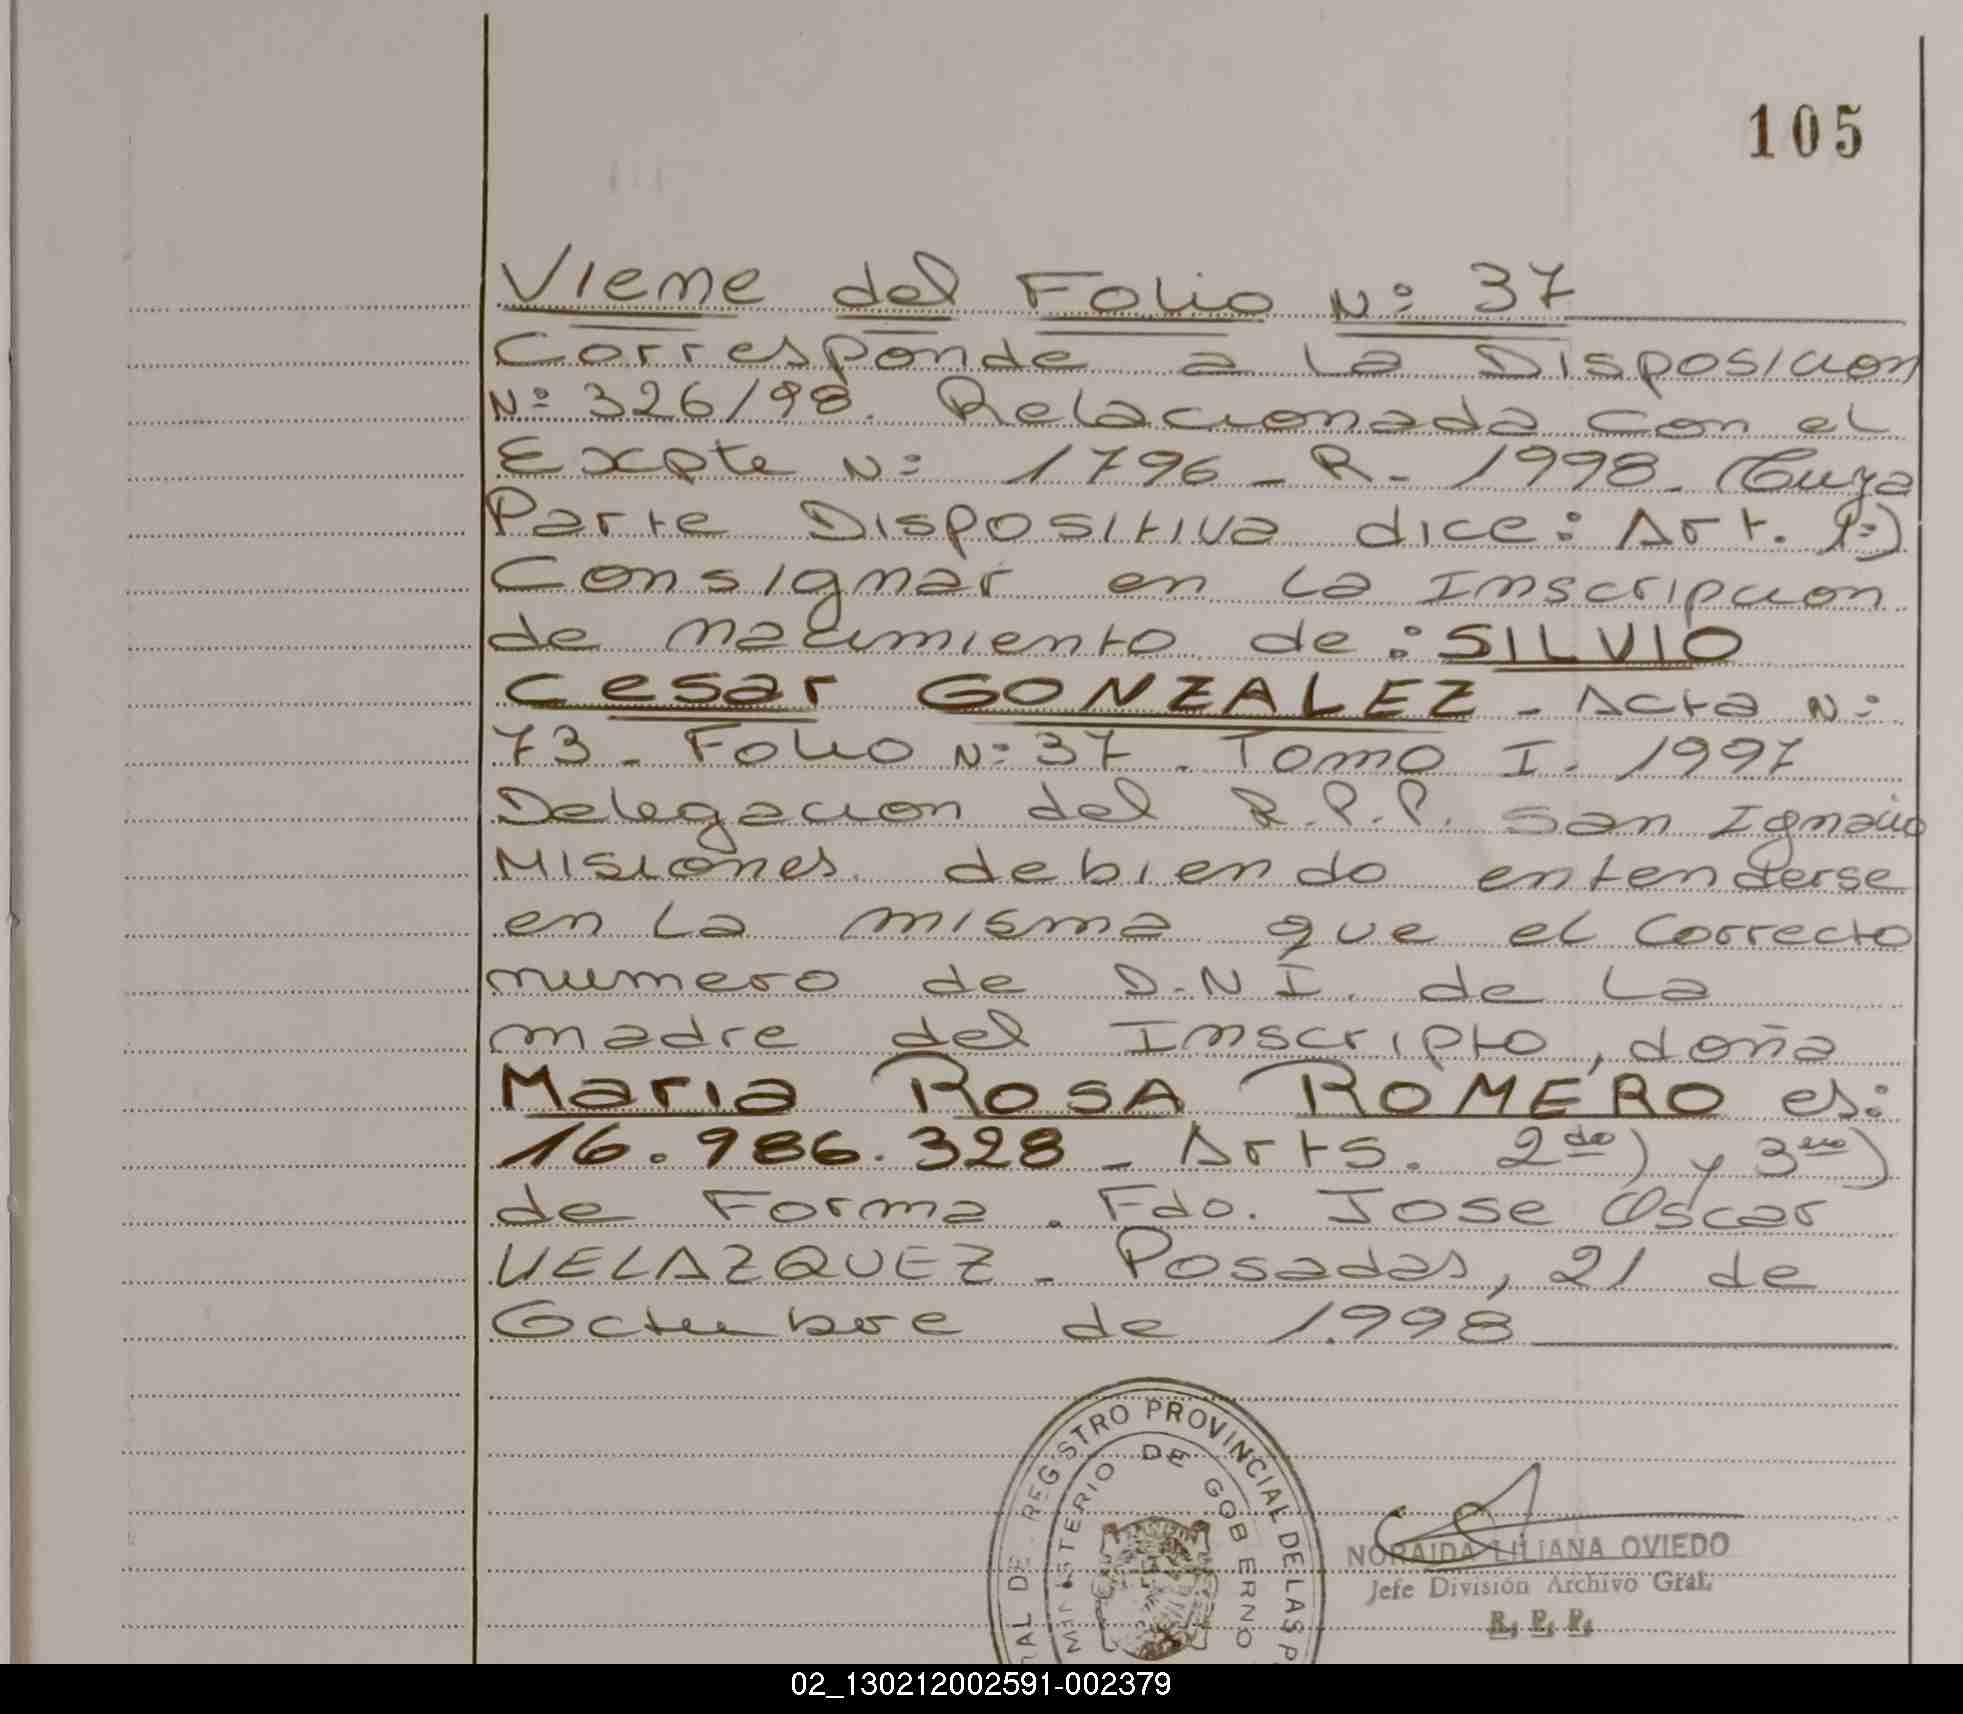 105
Viene del Folio Nº 37
Corresponde a la Disposicion
Nº 326/98. Relacionada con el
Expte Nº 1796-R-1998. Cuya
Parte Dispositiva dice: Art. 1º)
Consignar en la Inscripcion
de nacimiento de: SILVIO
Cesar GONZALEZ - Acta Nº
73 - Folio Nº 37. Tomo I. 1997
Delegacion del R.P.P. San Ignacio
Misiones. debiendo entenderse
en la misma que el Correcto
numero de D.N.I. de la
madre del Inscripto, doña
Maria ROSA ROMERO es:
16.986.328 - Arts. 2do) y 3ero)
de Forma. Fdo. Jose Oscar
VELAZQUEZ - Posadas, 21 de
Octubre de 1998
REGISTRO PROVINCIAL DE LAS P
MINISTERIO DE GOBIERNO
NORAIDA LILIANA OVIEDO
Jefe División Archivo Gral.
R. P. P.
02_130212002591-002379